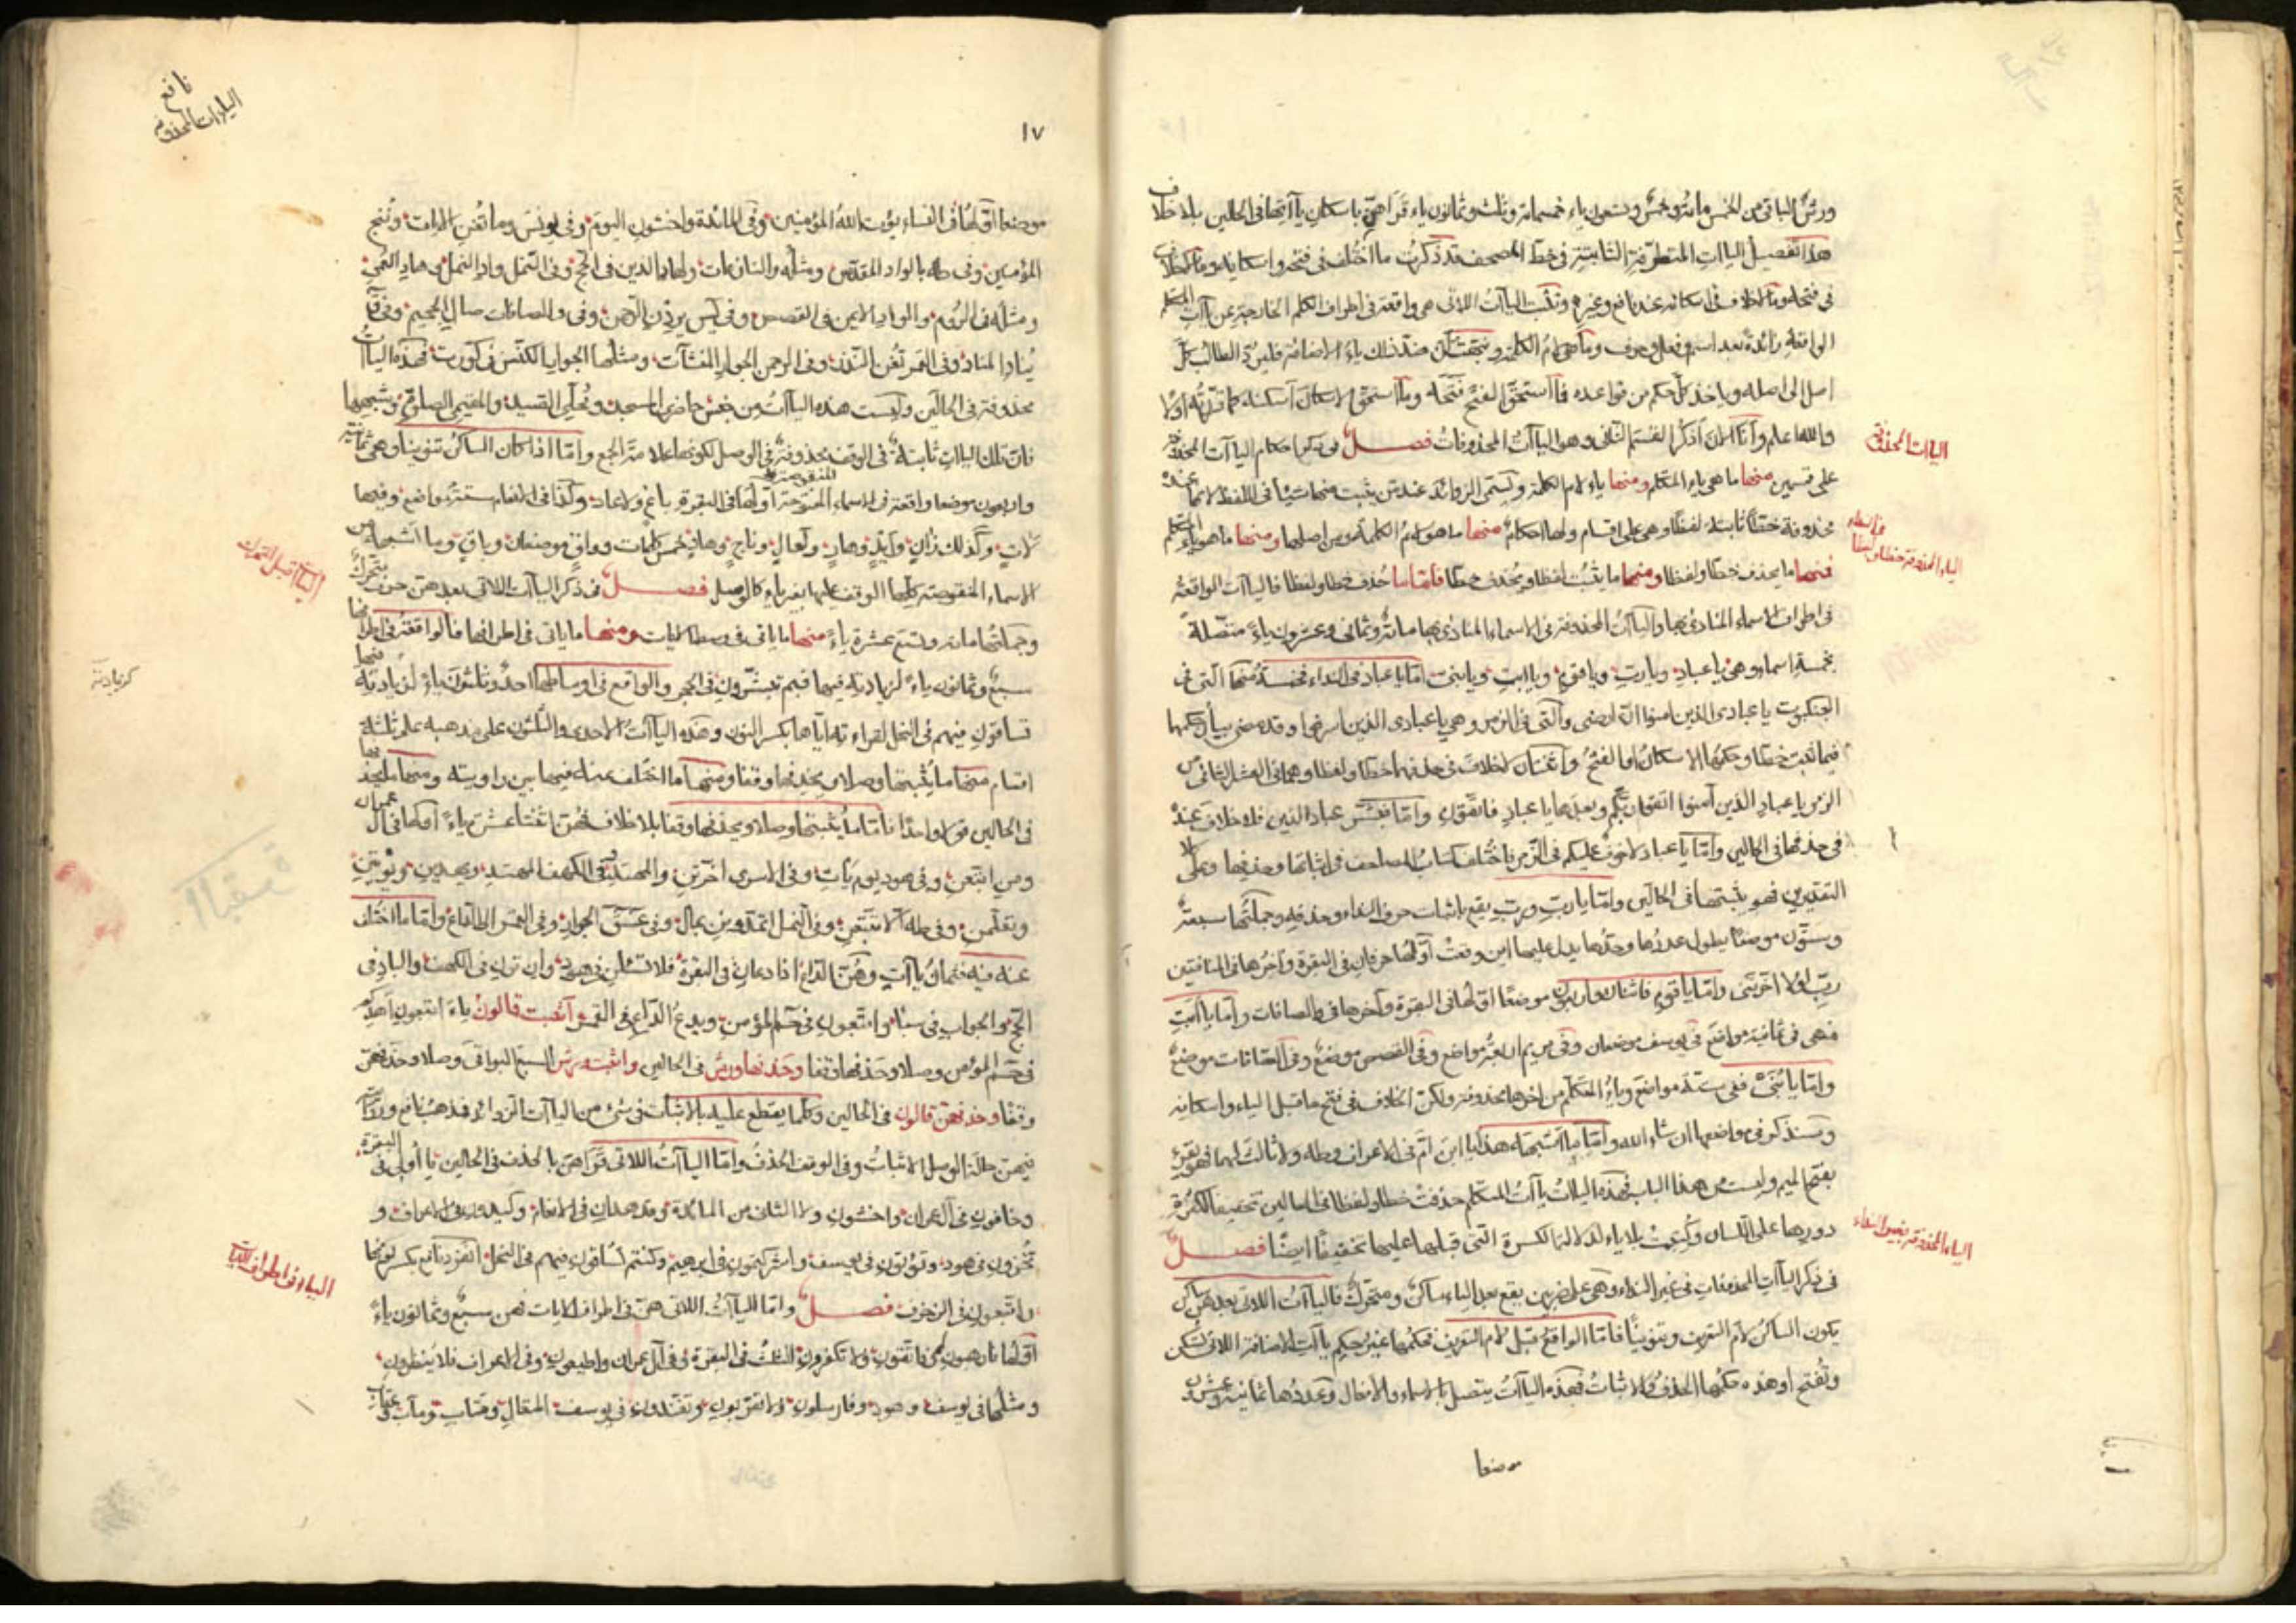 ورش الباقي من الخمس مائة وخمس وتسعون ياء خمسمائة وثلث وثمانون ياء قراهن باسكان ياآتها في الحالين بلا خلاف
هذا تفصيل الياات المتطرفة الثابتة في خط المصحف قد ذكرت ما اختلف في فتحه واسكانه وما لا خلاف
في فتحه وما لا خلاف في اسكانه عند نافع وغيره وتلك الياآت اللاتي هي واقعة في اطراف الكلم الخارجة عن ياآت المتكلم
الواقعة زائدة بعد اسم وفعل وحرف وما هي لام الكلمة
اصل الى اصله وياخذ كل حكم من قواعده فما استحق الفتح فتحه وما استحق الاسكان اسكنه كما قررته اولا
والله اعلم وانا الان اذكر القسم الثاني وهو الياآت المحذوفات فصل في ذكر احكام الياآت المحذوفة
الياآت المحذوفة
على قسمين منها ما هي ياء المتكلم ومنها ياء لام الكلمة وتسمى الزوائد عند من يثبت منها شيئا في اللفظ لانها عنده
محذوفة خطا ثابتة لفظا وهي على اقسام ولها احكام منها ما هو لام الكلمة ومن اصلها ومنها ما هو ياء المتكلم
الياء المحذوفة خطا ولفظا
فمنها ما يحذف خطا ولفظا ومنها ما يثبت لفظا ويحذف خطا فاما ما حذف خطا ولفظا فالياآت الواقعة
في اطراف الاسماء المنادى بها والياآت المحذوفة في الاسماء المنادى بها مائة وثماني وعشرون ياء متصلة
بخمسة اسماء وهي يا عباد ويا رب ويا قوم ويا ابت ويا بني اما يا عباد في النداء فخمسة منها التي في
العنكبوت يا عبادي الذين امنوا ان ارضي والتي في الزمر وهي يا عبادي الذين اسرفوا وقد مضى بيان حكمها
فيما ثبت خطا وحكمها الاسكان او الفتح واثنتان لا خلاف في حذفهما خطا ولفظا وهما في العشر الثاني من
الزمر يا عباد الذين آمنوا اتقوا ربكم وبعدها يا عباد فاتقون واما فبشر عباد الذين فلا خلاف عنده
في حذفها في الحالين واما يا عباد لا خوف عليكم في الزخرف اختلف كتاب المصاحف في اثباتها وحذفها وعلى كلا
التقديرين فهو يثبتها في الحالين واما يا رب ورب يقع باثبات حرف النداء وحذفه وجملتها سبعة
وستون موضعا يطول عددها وحدها يدل عليها اين وقعت اولها حرفان في البقرة واخرها في المنافقين
رب لولا اخرتني واما يا قوم فاثنان واربعون موضعا اولها في البقرة وآخرها في والصافات واما يا ابت
فهي في ثمانية مواضع في يوسف موضعان وفي مريم اربعة مواضع وفي القصص موضع وفي الصافات موضع
واما يا بني ففي ستة مواضع وياء المتكلم من اخرها محذوفة ولكن الخلاف في فتح ما قبل الياء واسكانه
وسنذكر في مواضعها ان شاء الله واما ما اشبهه هذا يا ابن ام في الاعراف وطه ولا ثالث لهما فهو يقرء
بفتح الميم وليست من هذا الباب فهذه الياات ياآت المتكلم حذفت خطا ولفظا في الحالين تخفيفا لكثرة
دورها على اللسان وكتبت بلا ياء لدلالة الكسرة التي قبلها عليها تخفيفا ايضا فصل
الياء المحذوفة بغير النداء
في ذكر الياآت المحذوفات في غير النداء وهي على ضربين يقع بعد الياء ساكن ومتحرك فالياآت اللاتي بعدهن ساكن
يكون الساكن لام التعريف وتنوينا فاما الواقع قبل لام التعريف فحكمها غير حكم ياآت الاضافة اللاتي تسكن
وتفتح اذ هذه حكمها الحذف ولا اثبات فهذه الياآت يتصل بالاسماء والافعال وعددها ثمانية عشر
موضعا
نافع
الياءات المحذوفة
١٧
موضعا اولها في النساء يؤت الله المؤمنين وفي المائدة واخشون اليوم وفي يونس وما تغن الايات وننج
المؤمنين وفي طه بالواد المقدس ومثله والنازعات ولهاد الذين في الحج وفي النمل واد النمل بهاد العمي
ومثله في الروم والواد الايمن في القصص وفي يس يردن الرحمن وفي والصافات صال الجحيم وفي ق
يناد المناد وفي القمر تغن النذر وفي الرحمن الجوار المنشآت ومثلها الجوار الكنس في كورت فهذه الياآت
محذوفة في الحالين وليست هذه الياآت من جنس حاضري المسجد ومحلي الصيد والمقيمي الصلوة وشبهها
فان تلك الياات ثابتة في الوقف محذوفة في الوصل لكونها علامة الجمع واما اذا كان الساكن تنوينا وهي ثمانية
واربعون موضعا واقعة في الاسماء المنقوصة اولها في البقرة باغ ولا عاد وكذا في الانعام ستة مواضع وفيها
لات وكذلك زان وايد وهار ولعال وناج وهاد خمس كلمات وواق موضعان وباق وما اشبهه من
الاسماء المنقوصة كلها الوقف عليها بغير ياء كالوصل فصل في ذكر الياآت اللاتي بعدهن حرف متحرك
الياآت قبل المتحرك
وجملتها مائة وتسع عشرة ياء منها ما ياتي في وسط الايات ومنها ما ياتي في اطرافها فالواقعة في اطرافها
سبع وثمانون ياء لزيادته فيها فبم تبشرون في الحجر والواقع في اوساطها احد وثلثون ياء لزيادته
كزيادته
تساقون فيهم في النحل لقراءته اياها بكسر النون وهذه الياآت الاحدى والثلثون على مذهبه على ثلثة
اقسام منها ما يثبتها وصلا ويحذفها وقفا ومنها ما اختلف عنه فيها بين راوييه ومنها ما يحذفها
في الحالين قولا واحدا فاما ما يثبتها وصلا ويحذفها وقفا بلا خلاف فهن اثنتا عشرة ياء اولها في آل عمران
ومن اتبعن وفي هود يوم يات وفي الاسرى اخرتن والمهتد وفي الكهف المهتد ويهدين ويؤتين
وتعلمن وفي طه الا تتبعن وفي النمل اتمدونن بمال وفي عسق الجوار وفي القمر الى الداع واما ما اختلف
عنه فيه فثمان ياآت وهن الداع اذا دعان في البقرة فلا تسئلن في هود وان ترن في الكهف والباد في
الحج والجواب في سبا واتبعون في حم المؤمن ويدع الداع في القمر اثبت قالون ياء اتبعون اهدكم
في حم المؤمن وصلا وحذفها وقفا وحذفها ورش في الحالين واثبت ورش السبع البواقي وصلا وحذفهن
وقفا وحذفهن قالون في الحالين وكلما يقطع عليه بالاثبات في شيء من الياآت الزوائد فمذهب نافع
فيهن حالة الوصل الاثبات وفي الوقف الحذف واما الياآت اللاتي قراهن بالحذف في الحالين يا اولي في البقرة
وخافون في آل عمران واخشون ولا الثاني من المائدة وقد هدان في الانعام وكيدون في الاعراف و
تخزون في هود وتؤتون في يوسف واشركتمون في ابرهيم وكنتم تساقون فيهم في النحل انفرد نافع بكسر نونها
واتبعون في الزخرف فصل واما الياآت اللاتي هن في اطراف الايات فهن سبع وثمانون ياء
الياء في اطراف الآيات
اولها فارهبون فاتقون ولا تكفرون الثلث في البقرة وفي آل عمران واطيعون وفي الاعراف فلا تنظرون
ومثلها في يوسف وهود وفارسلون ولا تقربون وتفندون في يوسف المتعال ومتاب ومآب وعقاب